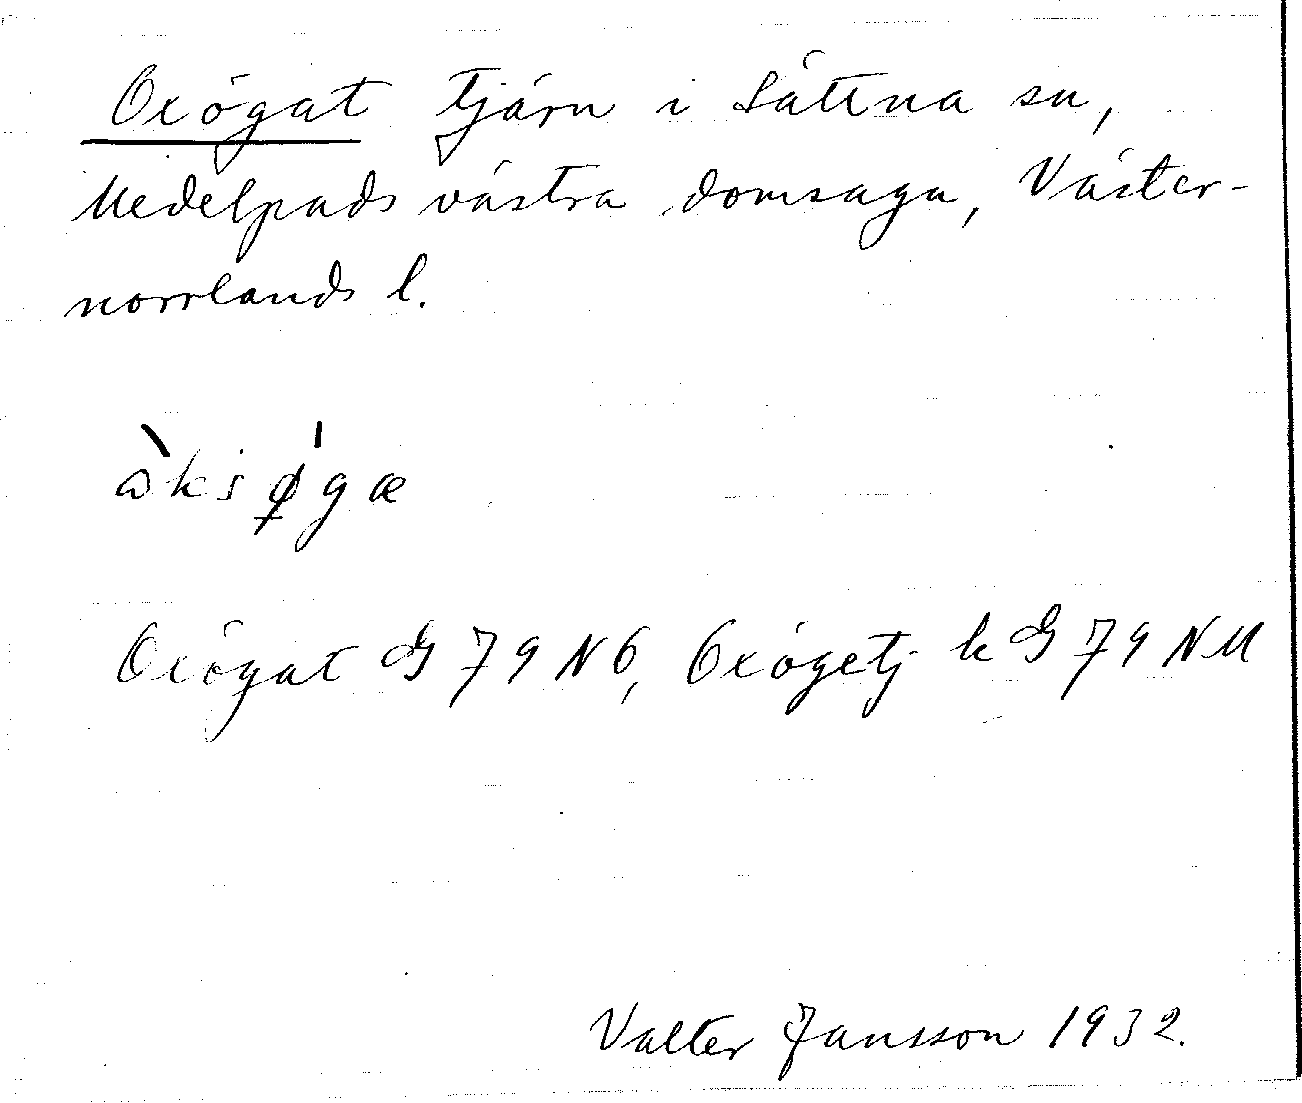 Oxögat tjärn i Sättna sn,
Medelpads västra domsaga, Väster-
norrlands l.
àksø̱'gæ
Oxögat G 79 NÖ, Oxögetj k G 79 NU
Valter Jansson 1932.